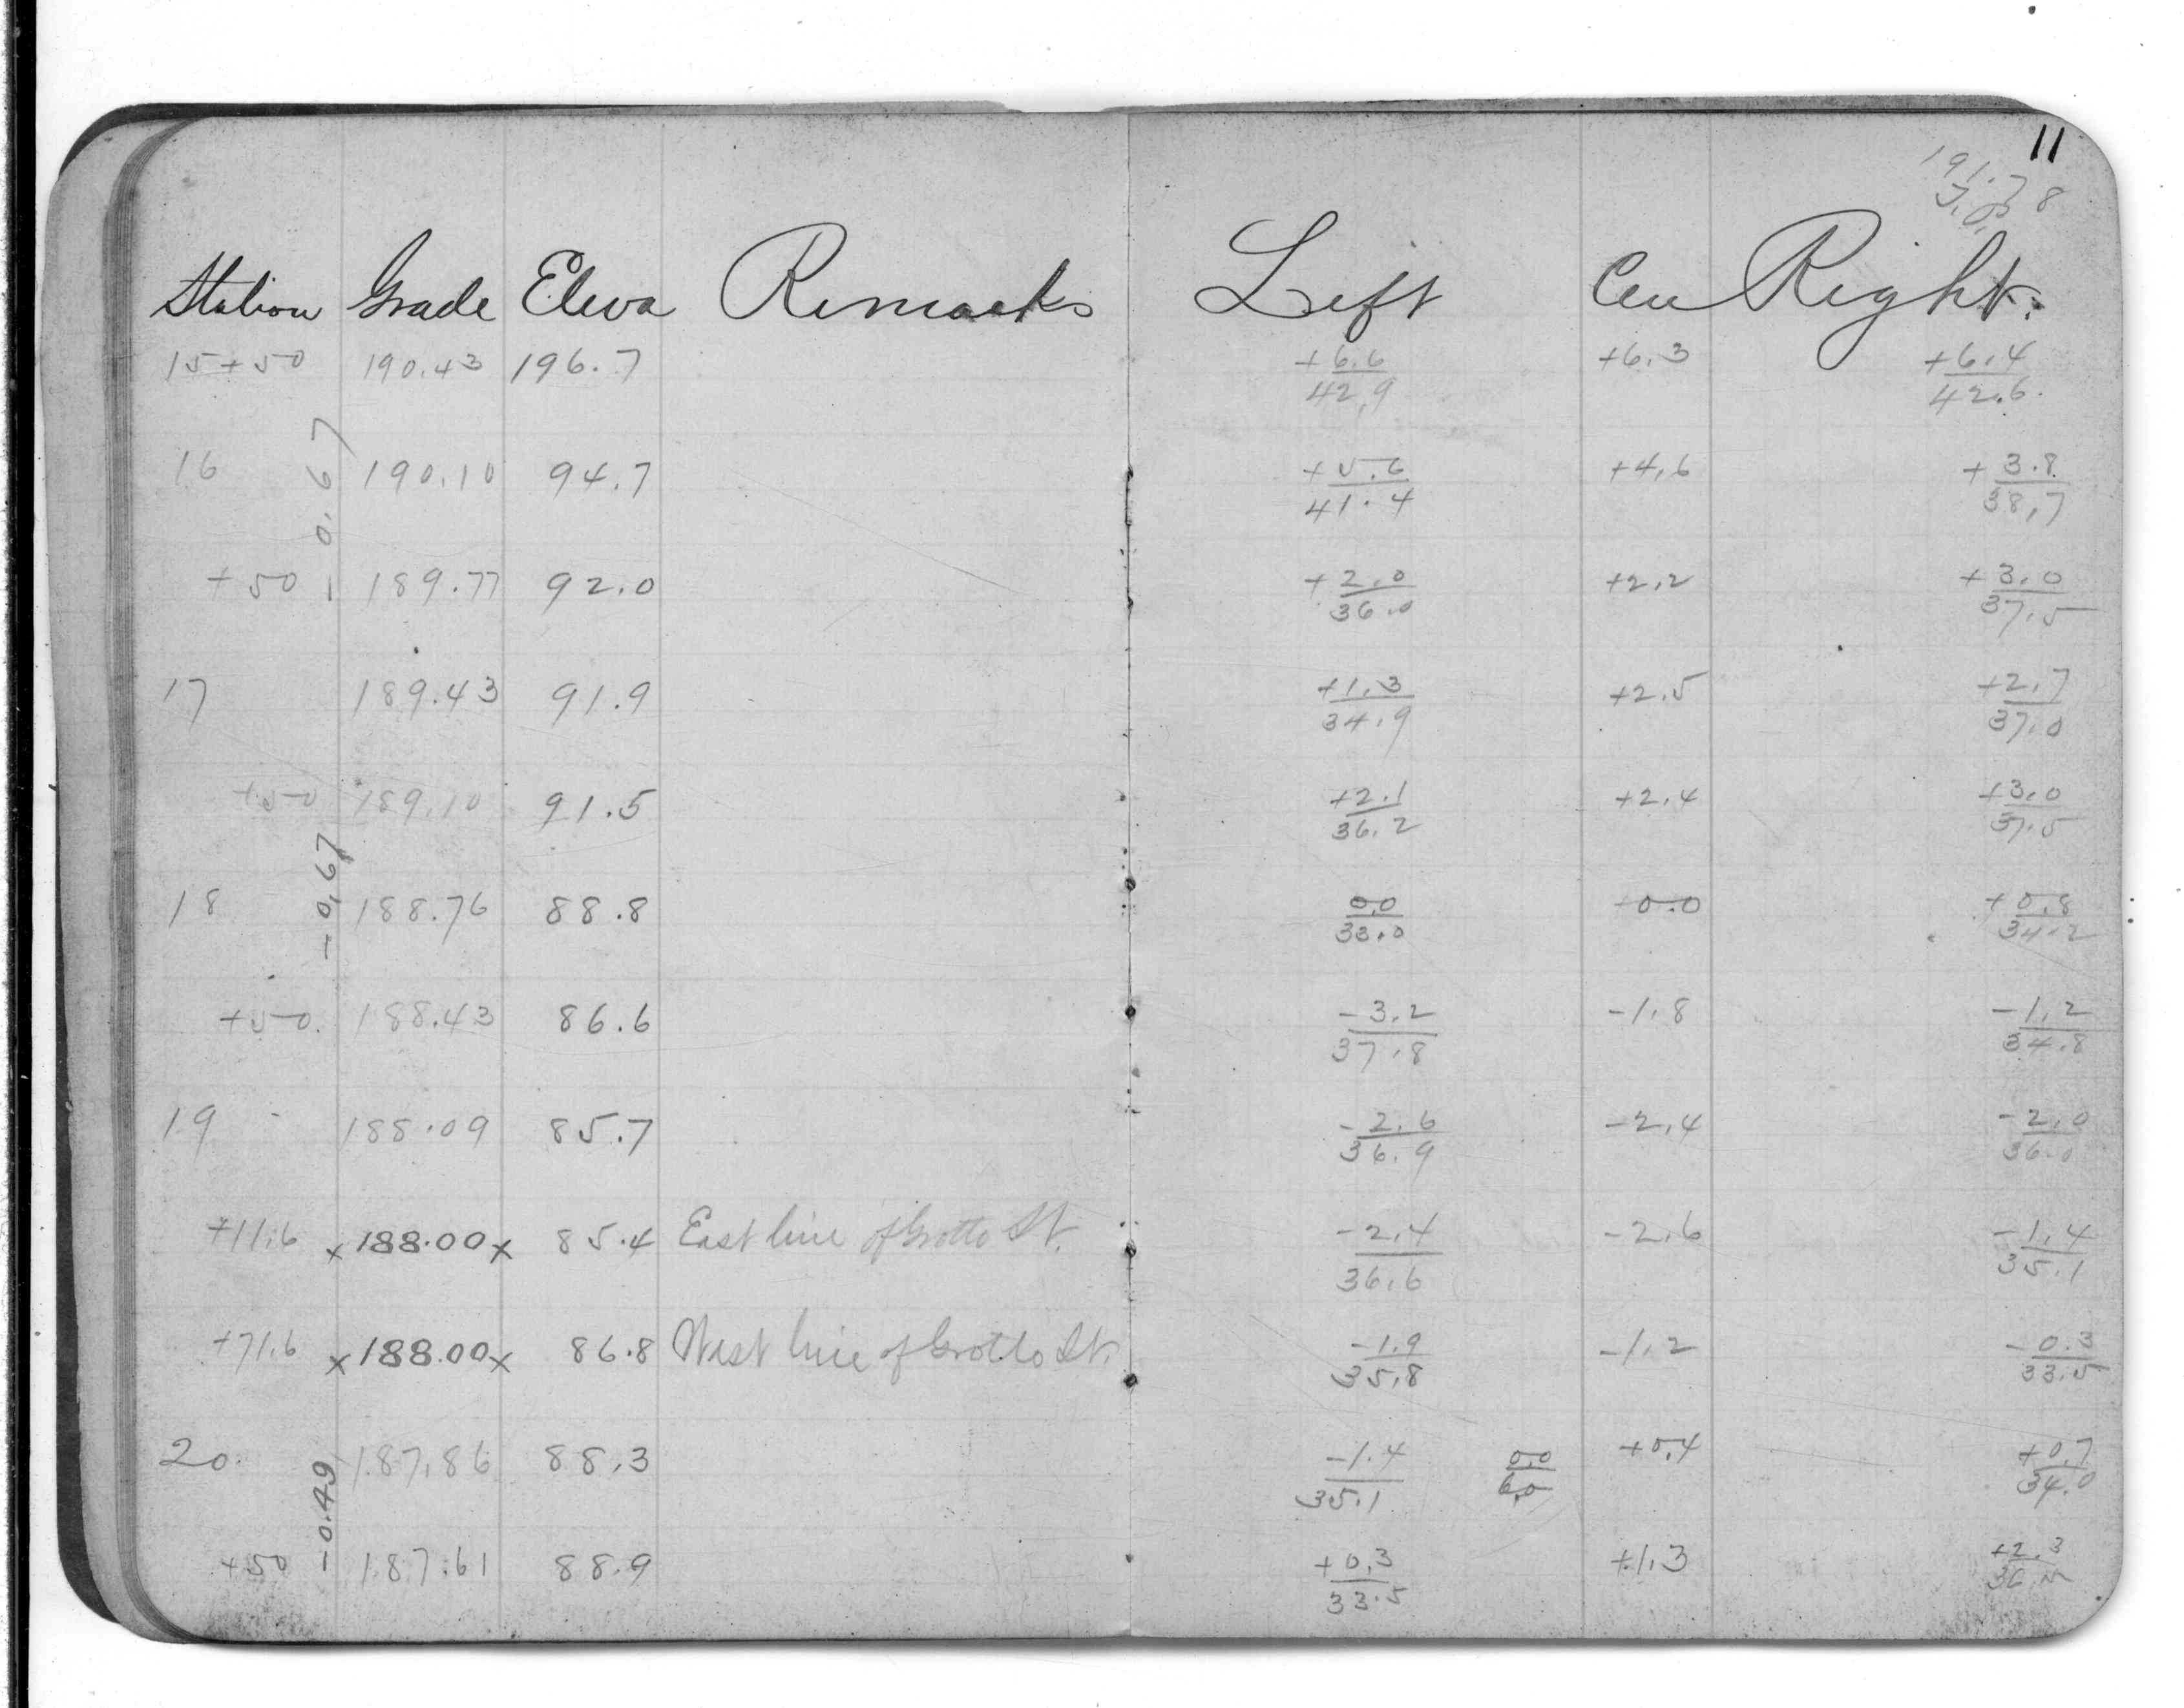 11
191.78
Station Grade Eleva Remarks Left Cen Right.
15+50 190.43 196.7 +6.6/42.9 +6.3 +6.4/42.6
-0.67
16 190.10 94.7 +5.6/41.4 +4.6 +3.8/38.7
+50 189.77 92.0 +2.0/36.0 +2.2 +3.0/37.5
17 189.43 91.9 +1.3/34.9 +2.5 +2.7/37.0
+50 189.10 91.5 +2.1/36.2 +2.4 +3.0/37.5
-0.67
18 188.76 88.8 0.0/33.0 +0.0 +0.8/34.2
+50. 188.43 86.6 -3.2/37.8 -1.8 -1.2/34.8
19 188.09 85.7 -2.6/36.9 -2.4 -2.0/36.0
+11.6 x188.00x 85.4 East line of Grotto St. -2.4/36.6 -2.6 -1.4/35.1
+71.6 x188.00x 86.8 West line of Grotto St. -1.9/35.8 -1.2 -0.3/33.5
20. 187.86 88.3 -1.4/35.1 0.0/6.0 +0.4 +0.7/34.0
-0.49
+50 187.61 88.9 +0.3/33.5 +1.3 +2.3